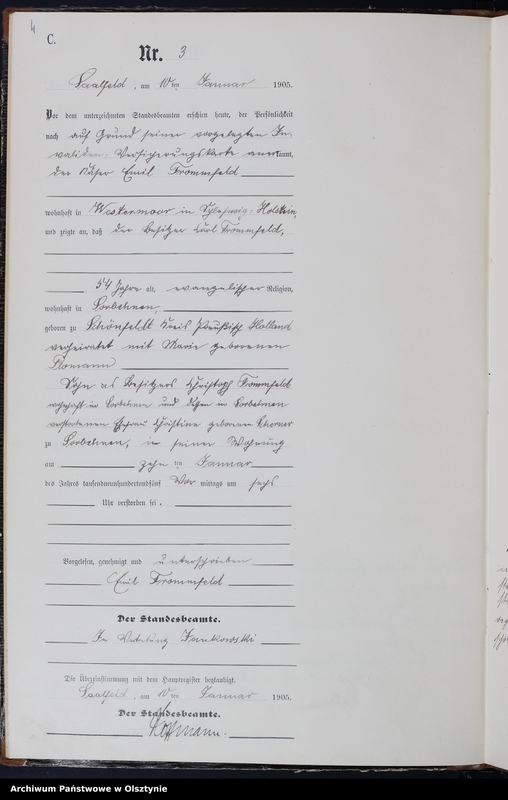 4
C.
Nr. 3
Saalfeld, am 10ten Januar 1905.
Vor dem unterzeichneten Standesbeamten erschien heute, der Persönlichkeit
nach auf Grund seiner vorgelegten In-
validen-Versicherungskarte anerkannt,
der Käser Emil Frommfeld
wohnhaft in Westermoor in Schleswig-Holstein,
und zeigte an, daß der Besitzer Carl Frommfeld,
54 Jahre alt, evangelischer Religion,
wohnhaft in Sorbehnen,
geboren zu Schönfeldt Kreis Preußisch Holland
verheiratet mit Marie geborenen
Sohn des Besitzers Christoph Frommfeld
in Sorbehnen und dessen in Sorbehnen
verstorbenen Ehefrau Christine geborenen
zu Sorbehnen, in seiner Wohnung
am zehnten Januar
des Jahres tausendneunhundertundfünf Vormittags um sechs
Uhr verstorben sei.
Vorgelesen, genehmigt und unterschrieben
Emil Frommfeld
Der Standesbeamte.
In Vertretung Jankowski
Die Übereinstimmung mit dem Hauptregister beglaubigt.
Saalfeld, am 10ten Januar 1905.
Der Standesbeamte.
Archiwum Państwowe w Olsztynie